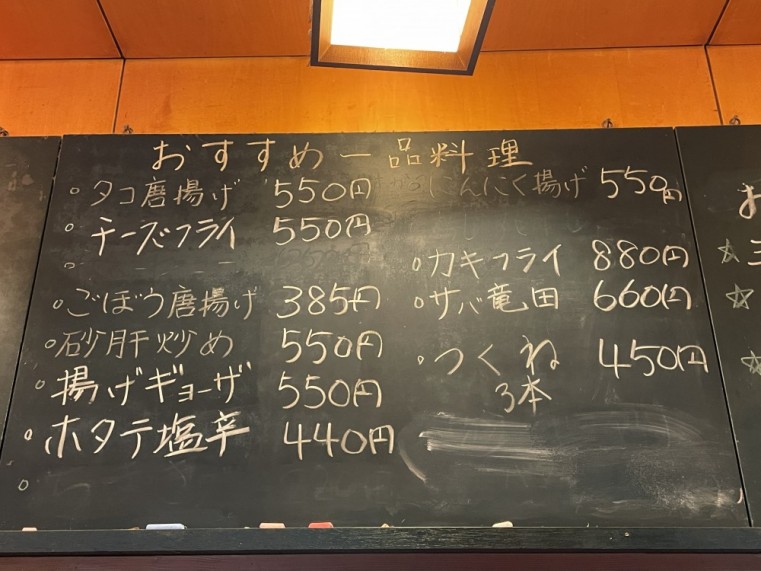 おすすめ一品料理
。タコ唐揚げ 550円
。チーズフライ 550円
。
。ごぼう唐揚げ 385円
。砂肝炒め 550円
。揚げギョーザ 550円
。ホタテ塩辛 440円
。
にんにく揚げ 550円
。カキフライ 880円
。サバ竜田 660円
。つくね 450円
3本
お
☆三
☆
☆